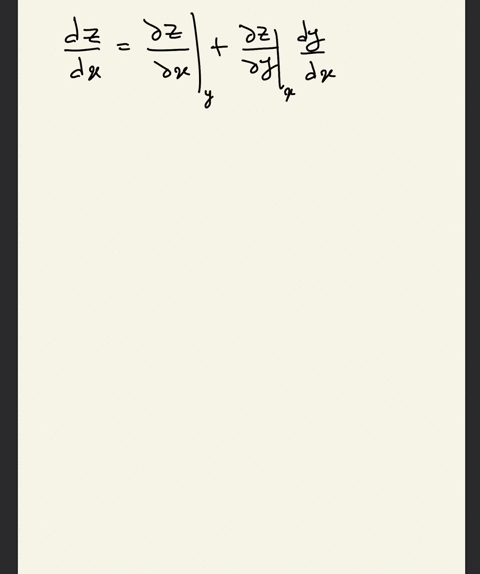 dz/dx = ∂z/∂x|_y + ∂z/∂y|_x dy/dx